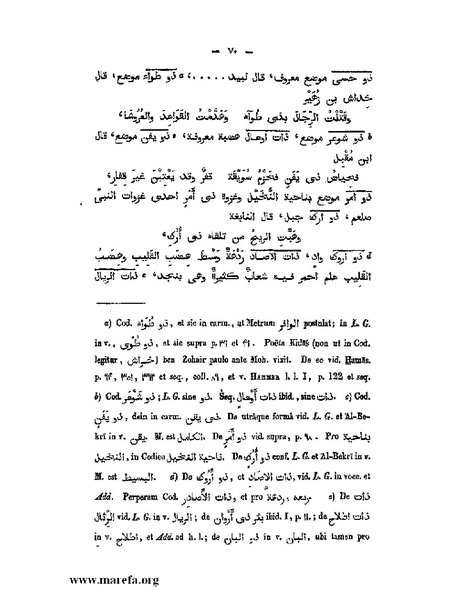 — ٧٠ —
ذو حسى موضع معروف، قال لبيد ......، ᵃ ذو طوآء موضع، قال
خداش بن زُهَيْر
وقَتَلْتُ الرِّجَالَ بذى طُوآء وهَدَّمْتُ القَوَاعِدَ والعُرُوشَا،
ᵇ ذو شوعر موضع، ذات أوعال هضبة معروفة، ᶜ ذو يقن موضع، قال
ابن مُقْبِل
ذو أَمَر موضع بناحية النُّخَيْل وغزوة ذى أَمَر احدى غزوات النبىّ
صلعم، ذو أرك جبل، قال النابغة
وهَبَّتِ الريحُ من تلقاء ذى أُرُك،
القليب علم احمر فيه شعابٌ كثيرةٌ وهى بنجد، ᵉ ذات الرئال
a) Cod. ذو طُوَآء, et sic in carm., ut Metrum الوافر postulat; in L. G.
in v., ذو طُوًى, et sic supra p. ٣٦ et ٤١. Poëta Kidâś (non ut in Cod.
legitur, خراش) ben Zohair paulo ante Moh. vixit. De eo vid. Hamâs.
et seq., coll. ٨٩, et v. HAMMER l. l. I, p. 122 et seq.
b) Cod. ذو شَوْعَر; L. G. sine ذو. Seq. ذات أوعال ibid., sine ذات. c) Cod.
ذو يَقَن, dein in carm. ذى يقن. De utrâque formâ vid. L. G. et Al-Be-
krî in v. يقن. M. est الكامل. De ذو أَمَر vid. supra, p. ٩. Pro بناحية
النخيل, in Codice ناحية النخيل. De ذو أُرُك conf. L. G. et Al-Bekrî in v.
M. est البسيط. d) De ذو أروك, et ذات الآصاد, vid. L. G. in vocc. et
Add. Perperam Cod. ذات الأصادر, et pro ردعه: ردعة. e) De ذات
الرئال vid. L. G. in v. الريال; de بئر ذى أَرْوان ibid. I, p. ١١.; de ذات اضلاح
in v. اضلاح, et Add. ad h. l.; de ذو البان in v. البان, ubi tamen pro
www.marefa.org